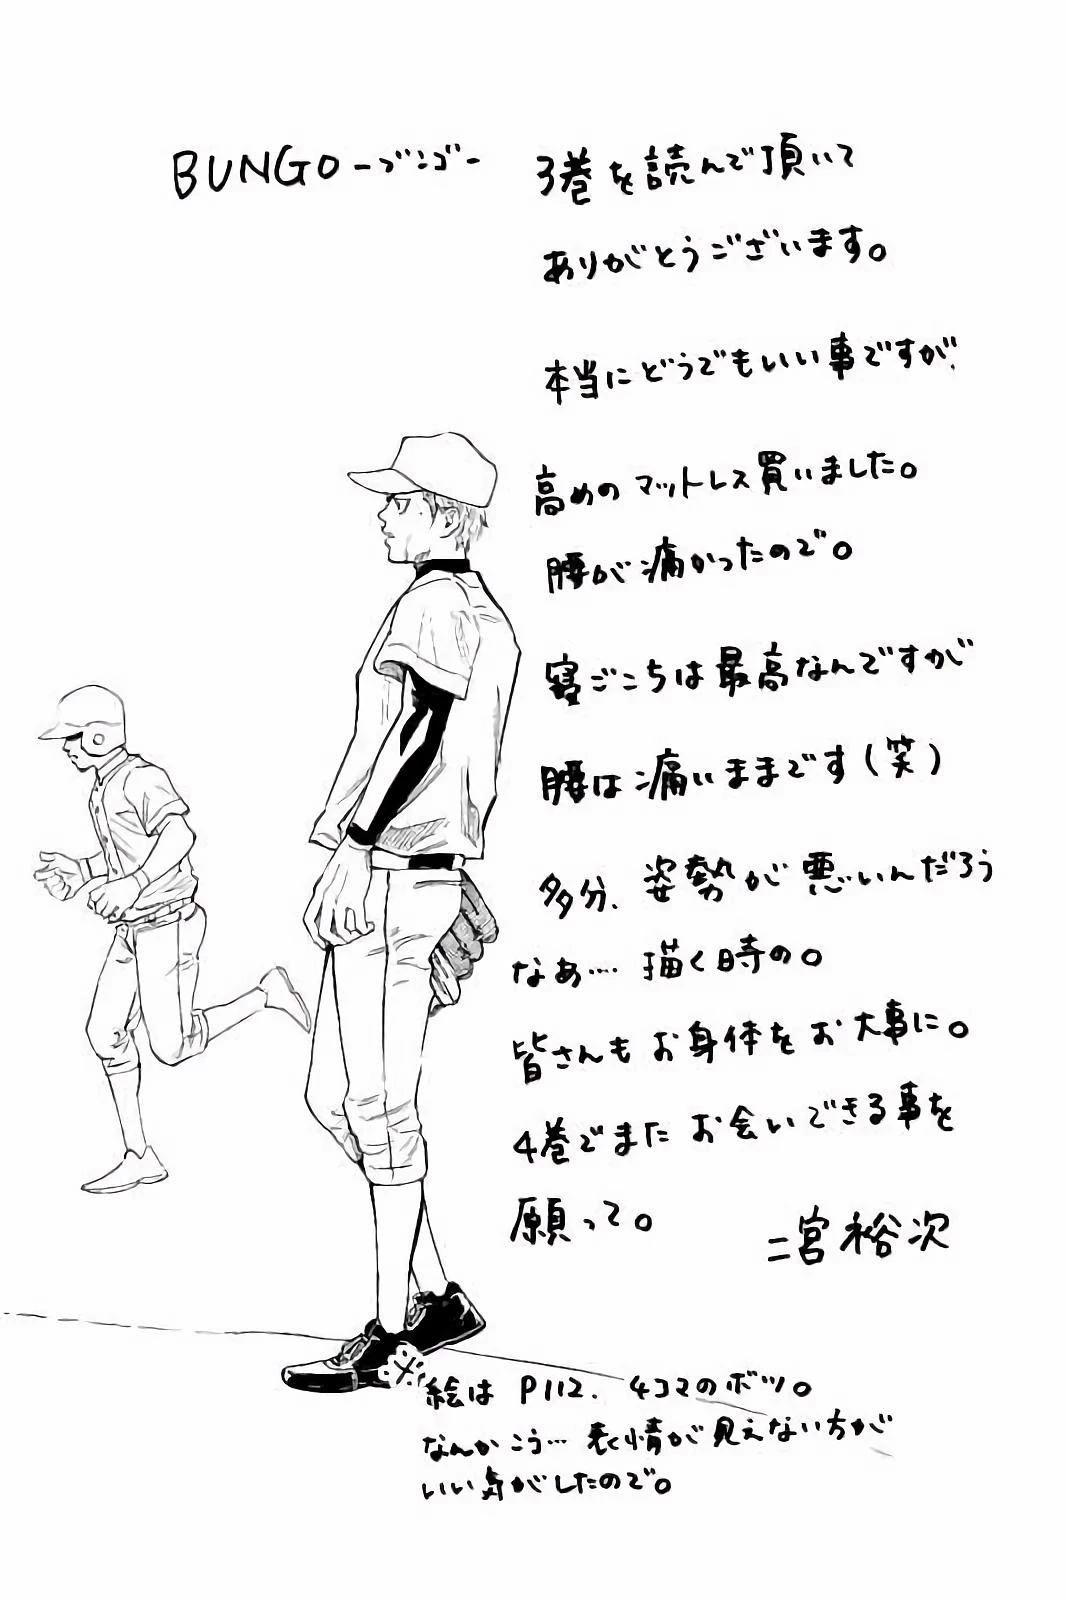 BUNGO-ブンゴ- 3巻を読んで頂いて
ありがとうございます。
本当にどうでもいい事ですが、
高めのマットレス買いました。
腰が痛かったので。
寝ごこちは最高なんですが
腰は痛いままです(笑)
多分、姿勢が悪いんだろう
なぁ…. 描く時の。
皆さんもお身体をお大事に。
4巻でまたお会いできる事を
願って。
二宮裕次
※絵はP112、4コマのボツ。
なんかこう…表情が見えない方が
いい気がしたので。